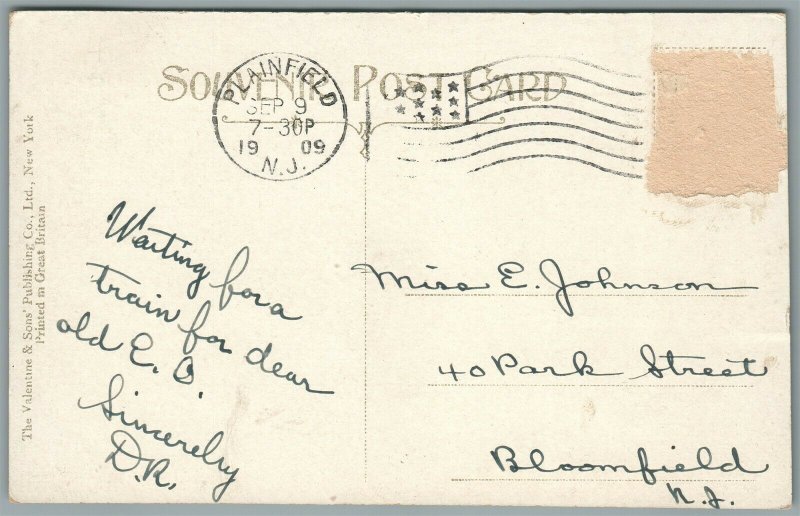 SOUVENIR POST CARD
PLAINFIELD
SEP 9
7-30P
1909
N.J.
The Valentine & Sons' Publishing Co., Ltd., New York
Printed in Great Britain
Waiting for a
train for dear
old E. O.
Sincerely
D.R.
Miss E. Johnson
40 Park Street
Bloomfield
N.J.